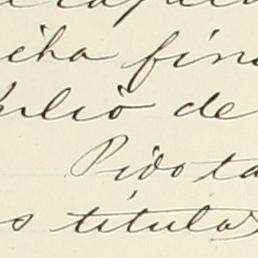 icha fin
Julio de
Pido ta
s titula